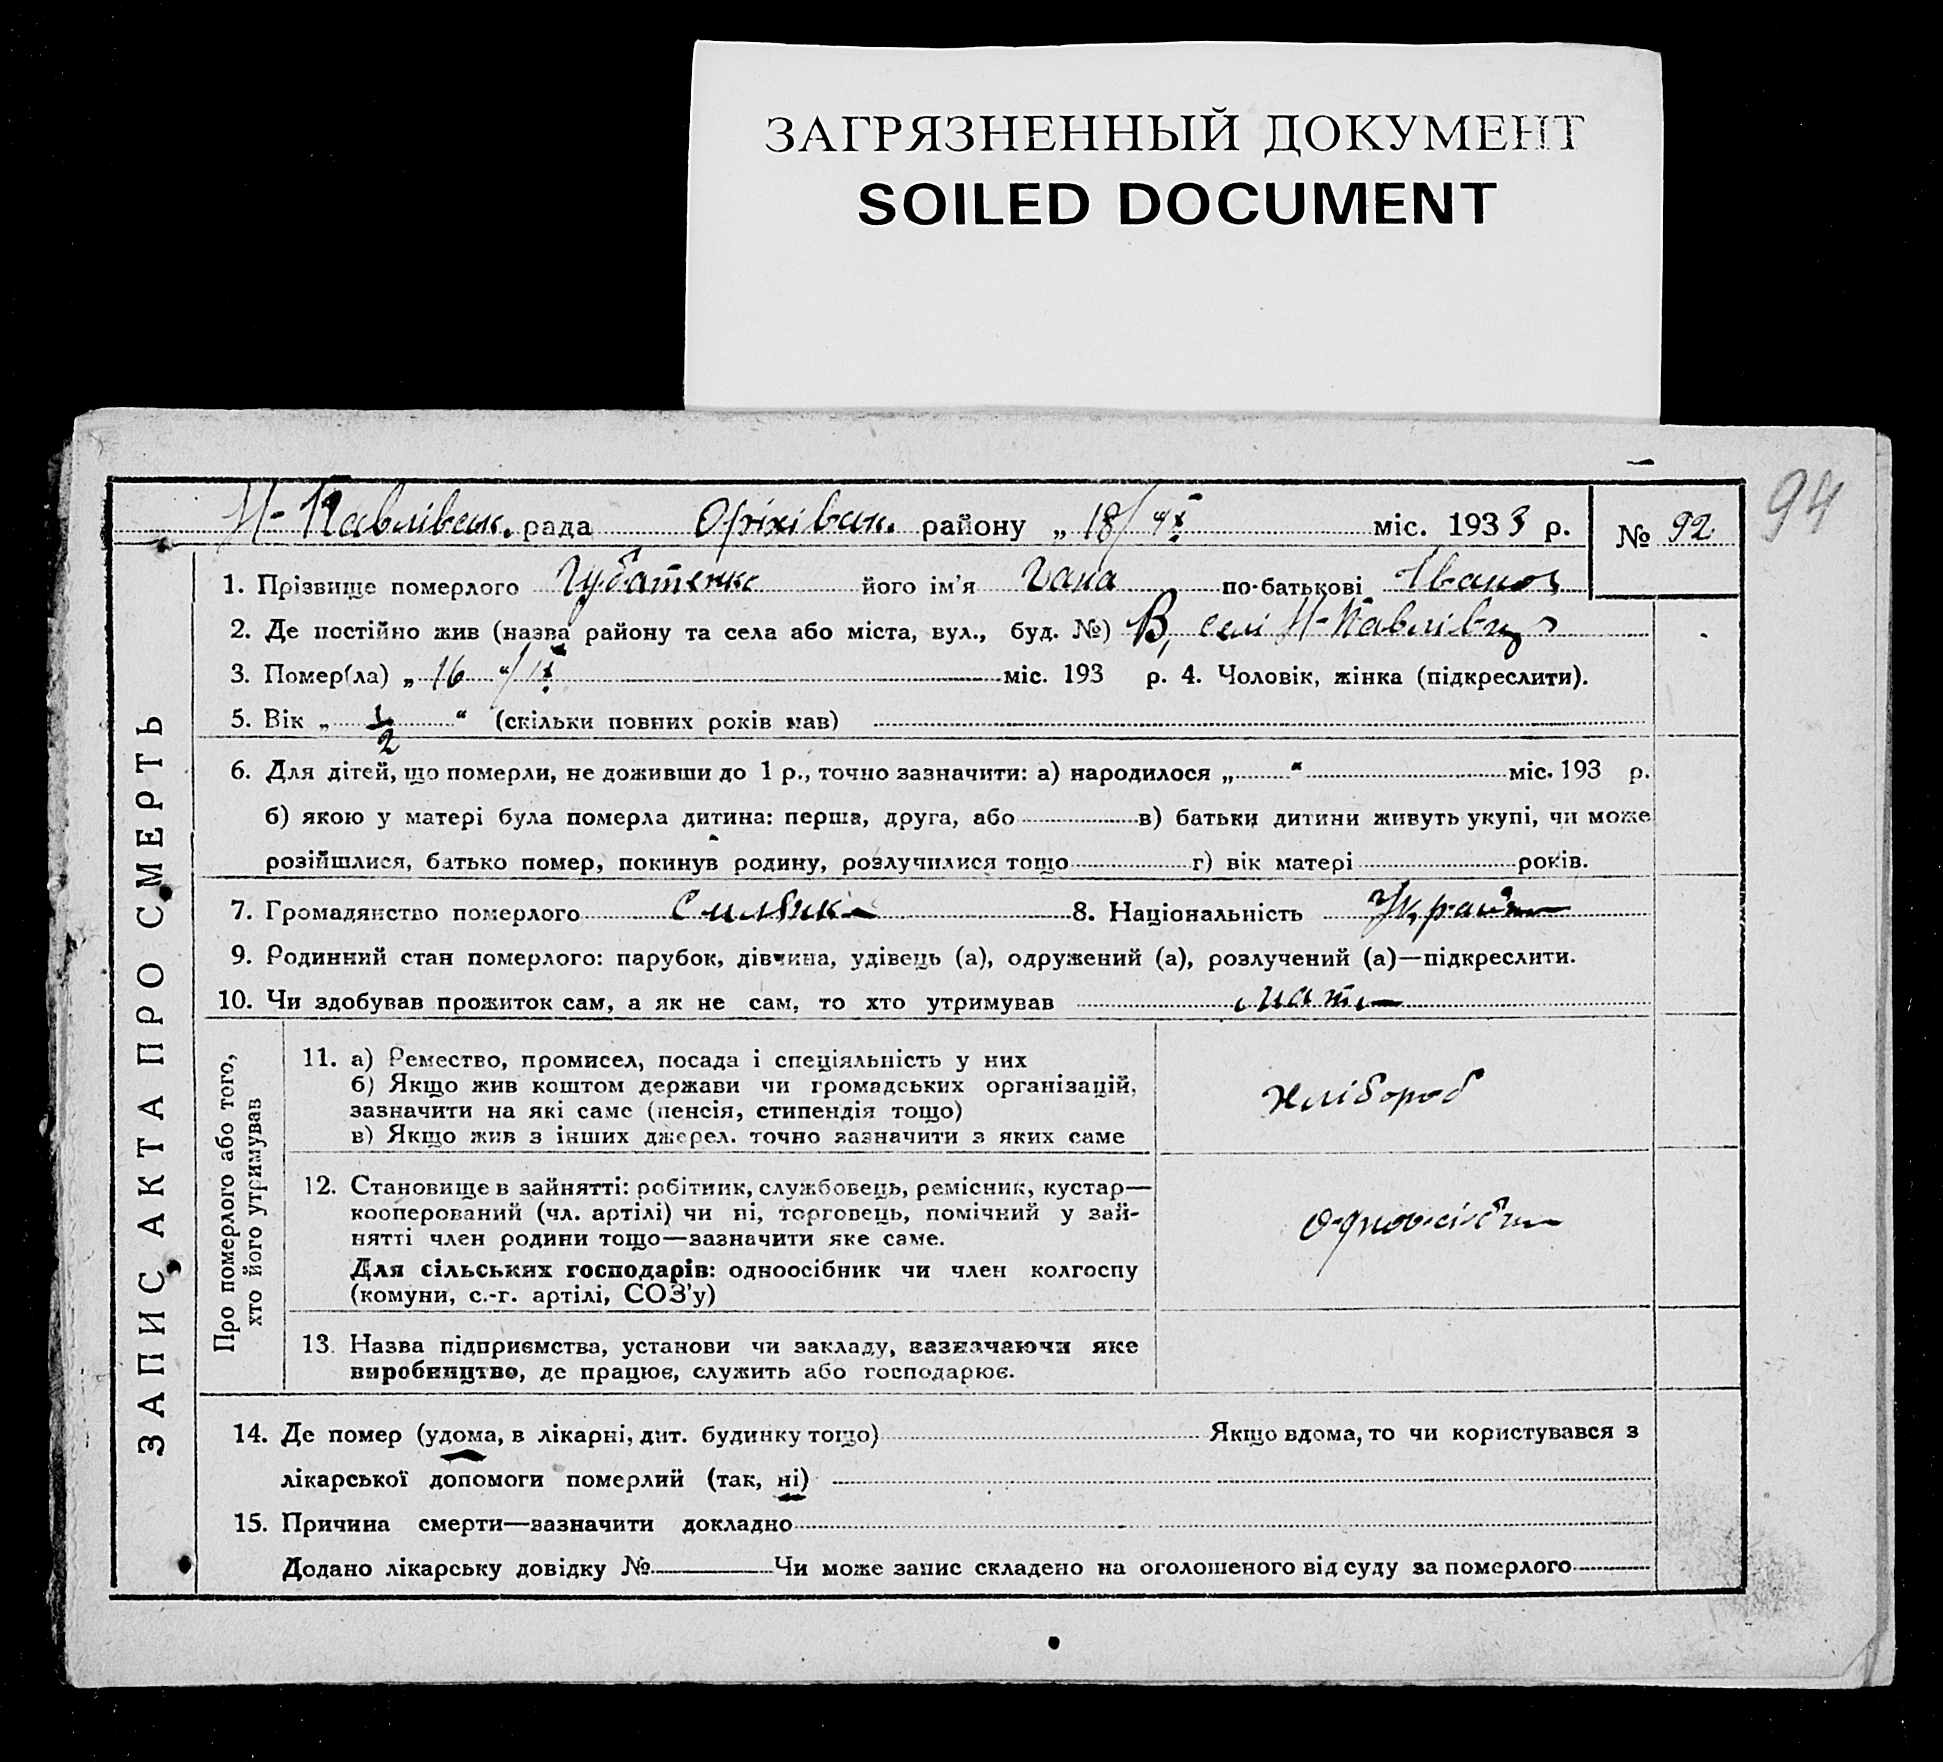 ЗАГРЯЗНЕННЫЙ ДОКУМЕНТ
SOILED DOCUMENT
94
Н-Павлівськ. рада Оріхівськ. району „18/ІХ міс. 1933 р.
№ 92
1. Прізвище померлого Губатенко його ім'я Гана по-батькові Іванов
2. Де постійно жив (назва району та села або міста, вул., буд. №) В, селі Н-Павлівц
3. Помер(ла) „16"/ІХ міс. 193 р. 4. Чоловік, жінка (підкреслити).
5. Вік „1/2" (скільки повних років мав)
6. Для дітей, що померли, не доживши до 1 р., точно зазначити: а) народилося „ " міс. 193 р.
б) якою у матері була померла дитина: перша, друга, або в) батьки дитини живуть укупі, чи може
розійшлися, батько помер, покинув родину, розлучилися тощо г) вік матері років.
7. Громадянство померлого 8. Національність Украін
9. Родинний стан померлого: парубок, дівчина, удівець (а), одружений (а), розлучений (а)—підкреслити.
10. Чи здобував прожиток сам, а як не сам, то хто утримував мати
ЗАПИС АКТА ПРО СМЕРТЬ
Про померлого або того,
хто його утримував
11. а) Ремество, промисел, посада і спеціяльність у них
б) Якщо жив коштом держави чи громадських організацій,
зазначити на які саме (пенсія, стипендія тощо)
в) Якщо жив з інших джерел. точно зазначити з яких саме
хлібороб
12. Становище в зайнятті: робітник, службовець, ремісник, кустар—
кооперований (чл. артілі) чи ні, торговець, помічний у зай-
нятті член родини тощо—зазначити яке саме.
Для сільських господарів: одноосібник чи член колгоспу
(комуни, с.-г. артілі, СОЗ'у)
одноосібн
13. Назва підприємства, установи чи закладу, зазначаючи яке
виробництво, де працює, служить або господарює.
14. Де помер (удома, в лікарні, дит. будинку тощо) Якщо вдома, то чи користувався з
лікарської допомоги померлий (так, ні)
15. Причина смерти—зазначити докладно
Додано лікарську довідку № Чи може запис складено на оголошеного від суду за померлого